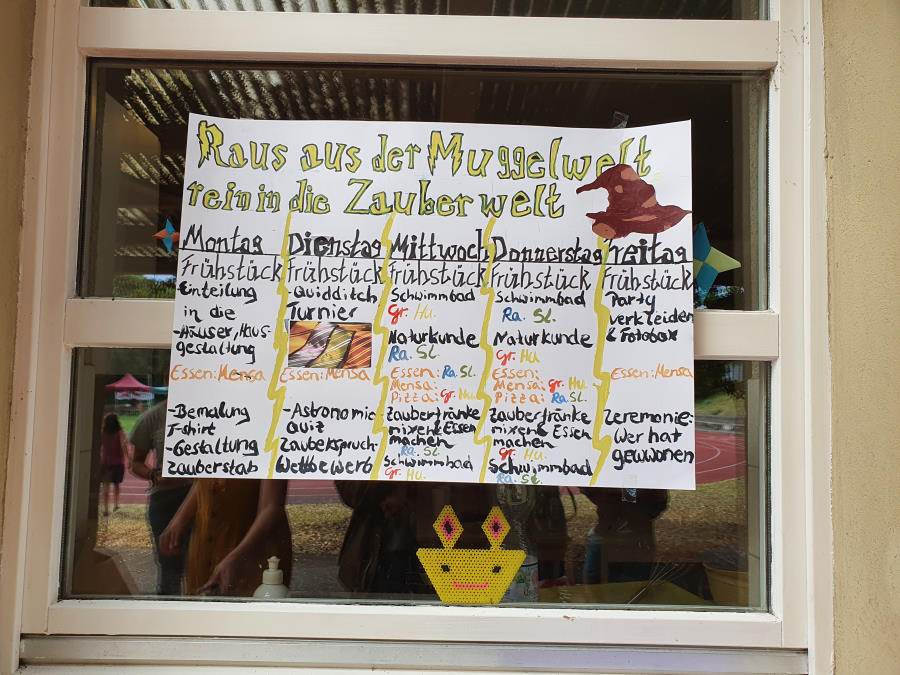 Raus aus der Muggelwelt
rein in die Zauberwelt
Montag
Frühstück
Einteilung
in die
-Häuser, Haus-
gestaltung
Essen: Mensa
-Bemalung
T-shirt
-Gestaltung
Zauberstab
Dienstag
Frühstück
-Quidditch
Turnier
Essen: Mensa
-Astronomie
quiz
Zauberspruch-
Wettbewerb
Mittwoch
Frühstück
Schwimmbad
Gr. Hu.
Naturkunde
Ra. Sl.
Essen: Ra. Sl.
Mensa:
Pizza: Gr. Hu.
Zaubertränke
mixen & Essen
machen
Ra. Sl.
Schwimmbad
Gr. Hu.
Donnerstag
Frühstück
Schwimmbad
Ra. Sl.
Naturkunde
Gr. Hu
Essen:
Mensa: Gr. Hu.
Pizza: Ra. Sl.
Zaubertränke
mixen & Essen
machen
Gr. Hu.
Schwimmbad
Ra. Sl.
Freitag
Frühstück
Party
verkleiden
& Fotobox
Essen: Mensa
Zeremonie:
Wer hat
gewonnen